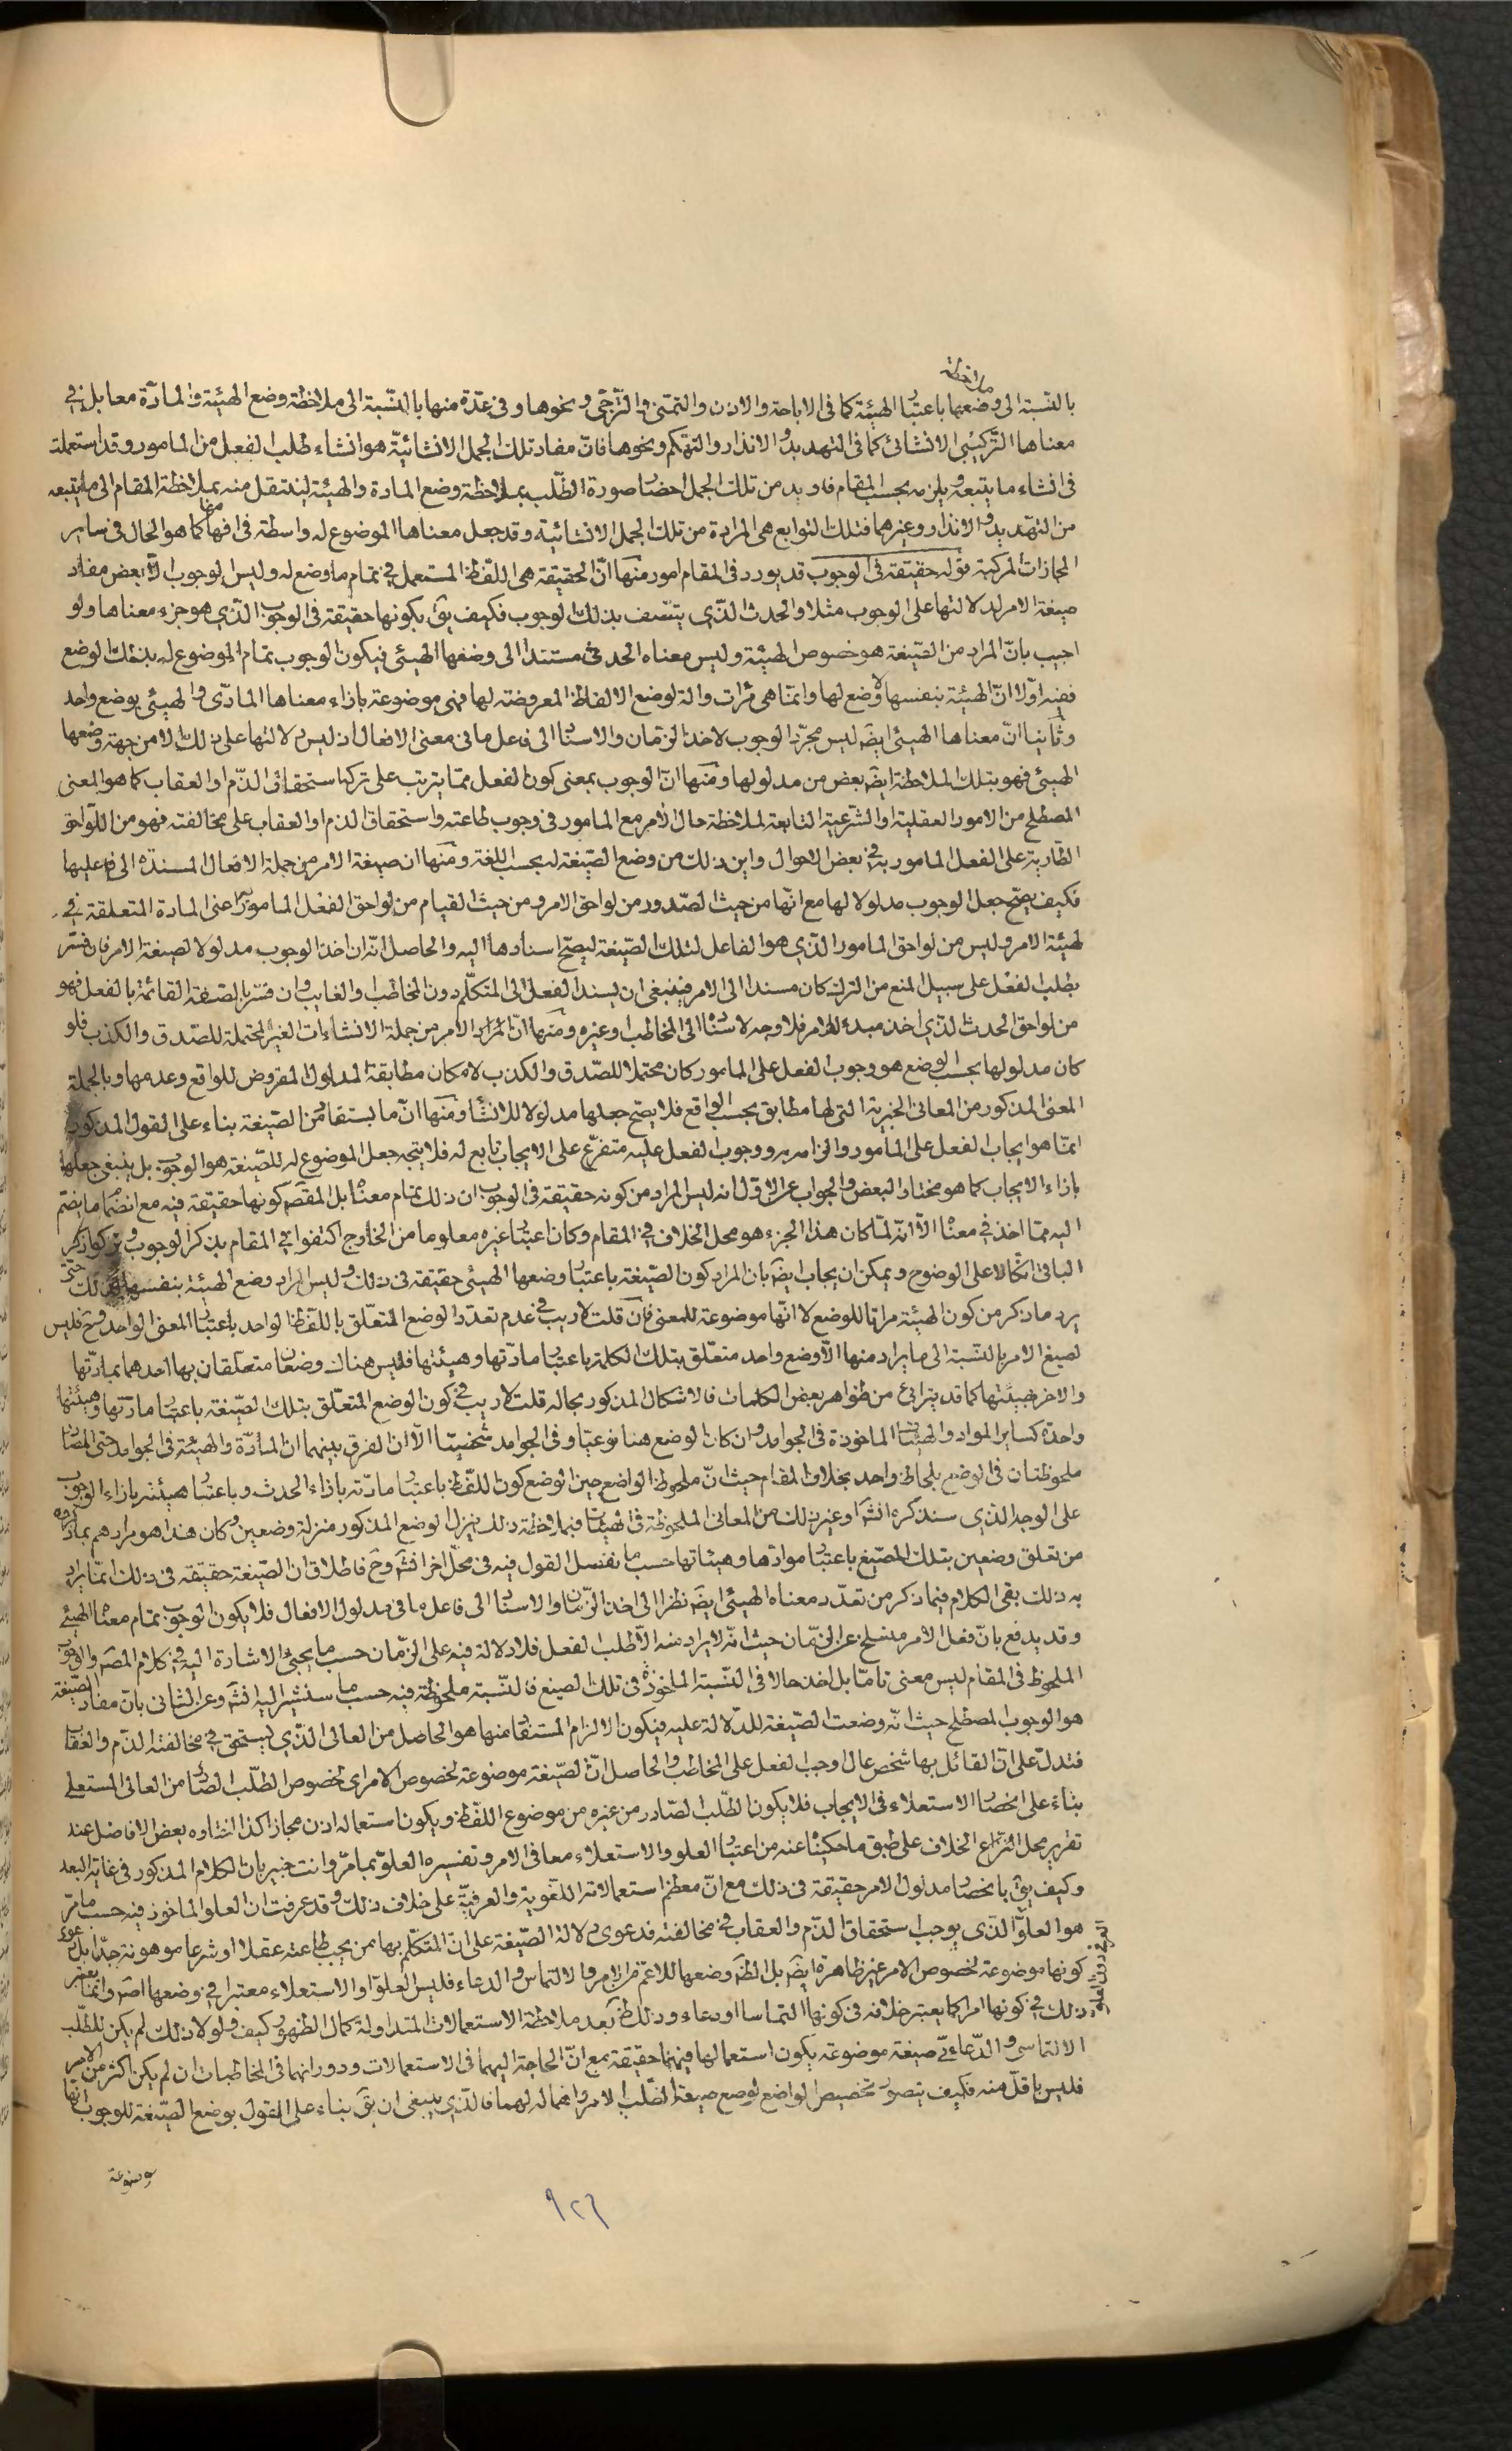 ملاحظة
بالنسبة الى وضعها باعتبار الهيئة كما فى الاباحة والاذن والتمنى والترجى ونحوها وفى عدة منها بالنسبة الى ملاحظة وضع الهيئة والمادة معا بل فى
معناها التركيبى الانشائى كما فى التهديد والانذار والتهكم ونحوها فان مفاد تلك الجمل الانشائية هو انشاء طلب الفعل من المامور وقد استعملت
فى انشاء ما يتبعه ويلزمه بحسب المقام فاريد من تلك الجمل احضار صورة الطلب بملاحظة وضع المادة والهيئة لينتقل منه بملاحظة المقام الى ما يتبعه
من التهديد والانذار وغيرهما فتلك التوابع هى المرادة من تلك الجمل الانشائية وقد جعل معناها الموضوع له واسطة فى افهامها كما هو الحال فى ساير
المجازات المركبة قوله حقيقة فى الوجوب قد يورد فى المقام امور منها ان الحقيقة هى اللفظ المستعمل فى تمام ما وضع له وليس الوجوب الا بعض مفاد
صيغة الامر لدلالتها على الوجوب مثلا والحدث الذى يتصف بذلك الوجوب فكيف يق بكونها حقيقة فى الوجوب الذى هو جزء معناها ولو
اجيب بان المراد من الصيغة هو خصوص الهيئة وليس معناه الحدثى مستندا الى وضعها الهيئى فيكون الوجوب تمام الموضوع له بذلك الوضع
ففيه اولا ان الهيئة بنفسها لا وضع لها وانما هى مرآت والة لوضع الالفاظ المعروضة لها فهى موضوعة بازاء معناها المادى والهيئى بوضع واحد
وثانيا ان معناها الهيئى ايض ليس مجرد الوجوب لاخذ الزمان والاسناد الى فاعل ما فى معنى الافعال اذ ليس دلالتها على ذلك الا من جهة وضعها
الهيئى فهو بتلك الملاحظة ايض بعض من مدلولها ومنها ان الوجوب بمعنى كون الفعل مما يترتب على تركه استحقاق الذم او العقاب كما هو المعنى
المصطلح من الامور العقلية او الشرعية التابعة لملاحظة حال الامر مع المامور فى وجوب طاعته واستحقاق الذم او العقاب على مخالفته فهو من اللواحق
الطارية على الفعل المامور به فى بعض الاحوال واين ذلك من وضع الصيغة له بحسب اللغة ومنها ان صيغة الامر من جملة الافعال المسندة الى فاعليها
فكيف يصح جعل الوجوب مدلولا لها مع انها من حيث الصدور من لواحق الامر ومن حيث القيام من لواحق الفعل المامور به اعنى المادة المتعلقة
لهيئة الامر وليس من لواحق المامور الذى هو الفاعل لتلك الصيغة ليصح اسنادها اليه والحاصل انه ان اخذ الوجوب مدلولا لصيغة الامر فان فسر
بطلب الفعل على سبيل المنع من الترك كان مسندا الى الامر فينبغى ان يسند الفعل الى المتكلم دون المخاطب والغايب وان فسر بالصفة القائمة بالفعل فهو
من لواحق الحدث الذى اخذ مبدء للامر فلا وجه لاسناده الى المخاطب وغيره ومنها ان المراد الامر من جملة الانشاءات الغير المحتملة للصدق والكذب فلو
كان مدلولها بحسب الوضع هو وجوب الفعل على المامور كان محتملا للصدق والكذب لامكان مطابقة المدلول المفروض للواقع وعدمها وبالجملة
المعنى المذكور من المعانى الخبرية التى لها مطابق بحسب الواقع فلا يصح جعلها مدلولا للانشاء ومنها ان ما يستفاد من الصيغة بناء على القول المذكور
انما هو ايجاب الفعل على المامور والزامه به ووجوب الفعل عليه متفرع على الايجاب تابع له فلا يتجه جعل الموضوع له للصيغة هو الوجوب بل ينبغى جعلها
بازاء الايجاب كما هو مختار البعض والجواب عن الاول انه ليس المراد من كونه حقيقة فى الوجوب ان ذلك تمام معناه بل المقص كونها حقيقة فيه مع انضمام ما يضم
اليه مما اخذ فى معناه الا انه لما كان هذا الجزء هو محل الخلاف فى المقام وكان اعتبار غيره معلوما من الخارج اكتفوا فى المقام بذكر الوجوب وتركوا ذكر
الباقى اتكالا على الوضوح ويمكن ان يجاب ايض بان المراد كون الصيغة باعتبار وضعها الهيئى حقيقة فى ذلك وليس المراد وضع الهيئة بنفسها لذلك حتى
يرد ما ذكر من كون الهيئة مراتا للوضع لا انها موضوعة للمعنى فان قلت لا ريب فى عدم تعدد الوضع المتعلق باللفظ الواحد باعتبار المعنى الواحد وح فليس
لصيغ الامر بالنسبة الى ما يراد منها الا وضع واحد متعلق بتلك الكلمة باعتبار مادتها وهيئتها فليس هناك وضعان متعلقان بها احدهما بمادتها
والاخر بهيئتها كما قد يتراىء من ظواهر بعض الكلمات فالاشكال المذكور بحاله قلت لا ريب فى كون الوضع المتعلق بتلك الصيغة باعتبار مادتها وهيئتها
واحدة كساير المواد والهيئات الماخوذة فى الجوامد وان كان الوضع هنا نوعيا وفى الجوامد شخصيا الا ان الفرق بينهما ان المادة والهيئة فى الجوامد حتى المصادر
ملحوظتان فى الوضع بلحاظ واحد بخلاف المقام حيث ان ملحوظ الواضع حين الوضع كون اللفظ باعتبار مادته بازاء الحدث وباعتبار هيئته بازاء الوجوب
على الوجه الذى سنذكره انش او غير ذلك من المعانى الملحوظة فى الهيئات فبملاحظة ذلك ينزل الوضع المذكور منزلة وضعين وكان هذا هو مرادهم بما ذكروه
من تعلق وضعين بتلك الصيغ باعتبار موادها وهيئاتها حسب ما نفصل القول فيه فى محل اخر انش وح فاطلاق ان الصيغة حقيقة فى ذلك انما يراد
به ذلك بقى الكلام فيما ذكر من تعدد معناه الهيئى ايض نظرا الى اخذ الزمان والاسناد الى فاعل ما فى مدلول الافعال فلا يكون الوجوب تمام معناه الهيئى
وقد يدفع بان فعل الامر منسلخ عن الزمان حيث انه لا يراد منه الا طلب الفعل فلا دلالة فيه على الزمان حسب ما يجيئ الاشارة اليه فى كلام المص والوجوب
الملحوظ فى المقام ليس معنى تاما بل اخذ حالا فى النسبة الماخوذة فى تلك الصيغ فالنسبة ملحوظة فيه حسب ما سنشير اليه انش وعن الثانى بان مفاد الصيغة
هو الوجوب المصطلح حيث انه وضعت الصيغة للدلالة عليه فيكون الالزام المستفاد منها هو الحاصل من العالى الذى يستحق فى مخالفته الذم والعقاب
فتدل على ان القائل بها شخص عال اوجب الفعل على المخاطب والحاصل ان الصيغة موضوعة لخصوص الامر اى لخصوص الطلب الصادر من العالى المستعلى
بناء على انحصار الاستعلاء فى الايجاب فلا يكون الطلب الصادر من غيره من موضوع اللفظ ويكون استعماله اذن مجازا كذا اختاره بعض الافاضل عند
تقرير محل النزاع الخلاف على طبق ما حكيناه عنه من اعتبار العلو والاستعلاء معا فى الامر وتفسيره العلو بما مر وانت خبير بان الكلام المذكور فى غاية البعد
وكيف يق بانحصار مدلول الامر حقيقة فى ذلك مع ان معظم استعمالاته اللغوية والعرفية على خلاف ذلك وقد عرفت ان العلو الماخوذ فيه حسب ما مر
هو العلو العرفى دون العلو الذى يوجب استحقاق الذم والعقاب فى مخالفته فدعوى دلالة الصيغة على ان المتكلم بها ممن يجب طاعته عقلا او شرعا موهونة جدا بل دعوى
كونها موضوعة لخصوص الامر غير ظاهرة ايض بل الظ وضعها للاعم من الامر والالتماس والدعاء فليس العلو او الاستعلاء معتبرا فى وضعها اصلا وانما يعتبر
ذلك فى كونها امرا كما يعتبر خلافه فى كونها التماسا او دعاء وذلك ظ بعد ملاحظة الاستعمالات المتداولة كمال الظهور كيف ولولا ذلك لم يكن للطلب
الالتماسى والدعائى صيغة موضوعة يكون استعمالها فيهما حقيقة مع ان الحاجة اليهما فى الاستعمالات ودورانهما فى المخاطبات ان لم يكن اكثر من الامر
فليس باقل منه فكيف يتصور تخصيص الواضع لوضع صيغة الطلب الامر واهماله لهما فالذى ينبغى ان يق بناء على القول بوضع الصيغة للوجوب انها
موضوعة
٩٢٦